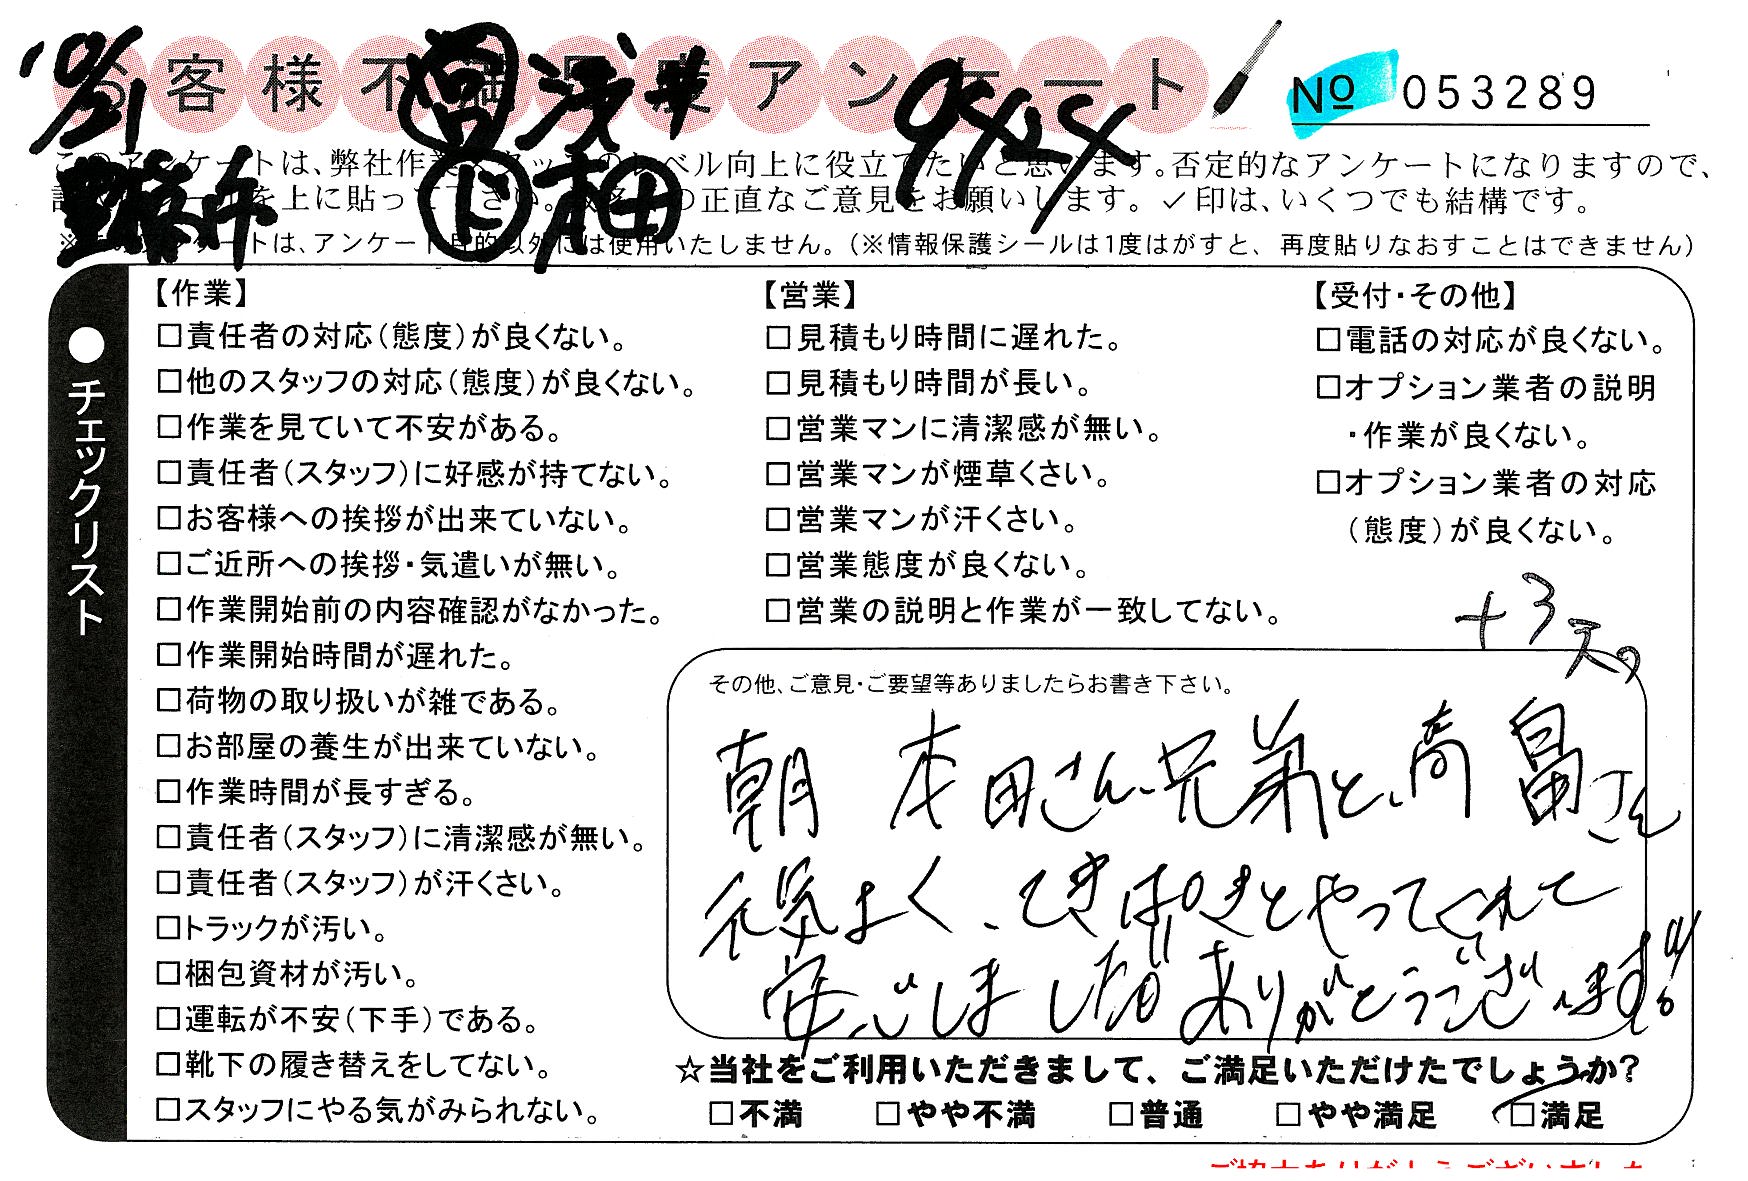 10/21
お客様不満足度アンケート
営 浅井
9×2×
№ 053289
このアンケートは、弊社作業スタッフのレベル向上に役立てたいと思います。否定的なアンケートになりますので、
を上に貼って下さい。 の正直なご意見をお願いします。✓印は、いくつでも結構です。
ト 本田
※ アンケートは、アンケート目的以外には使用いたしません。（※情報保護シールは1度はがすと、再度貼りなおすことはできません）
●チェックリスト
【作業】
□責任者の対応（態度）が良くない。
□他のスタッフの対応（態度）が良くない。
□作業を見ていて不安がある。
□責任者（スタッフ）に好感が持てない。
□お客様への挨拶が出来ていない。
□ご近所への挨拶・気遣いが無い。
□作業開始前の内容確認がなかった。
□作業開始時間が遅れた。
□荷物の取り扱いが雑である。
□お部屋の養生が出来ていない。
□作業時間が長すぎる。
□責任者（スタッフ）に清潔感が無い。
□責任者（スタッフ）が汗くさい。
□トラックが汚い。
□梱包資材が汚い。
□運転が不安（下手）である。
□靴下の履き替えをしてない。
□スタッフにやる気がみられない。
【営業】
□見積もり時間に遅れた。
□見積もり時間が長い。
□営業マンに清潔感が無い。
□営業マンが煙草くさい。
□営業マンが汗くさい。
□営業態度が良くない。
□営業の説明と作業が一致してない。
【受付・その他】
□電話の対応が良くない。
□オプション業者の説明
・作業が良くない。
□オプション業者の対応
（態度）が良くない。
+3
その他、ご意見・ご要望等ありましたらお書き下さい。
朝 本田さん、兄弟と、高畠さん
元気よく、てきぱきとやってくれて
安心しました!! ありがとうございます!!
☆当社をご利用いただきまして、ご満足いただけたでしょうか?
□不満 □やや不満 □普通 □やや満足 □満足
ご協力ありがとうございました